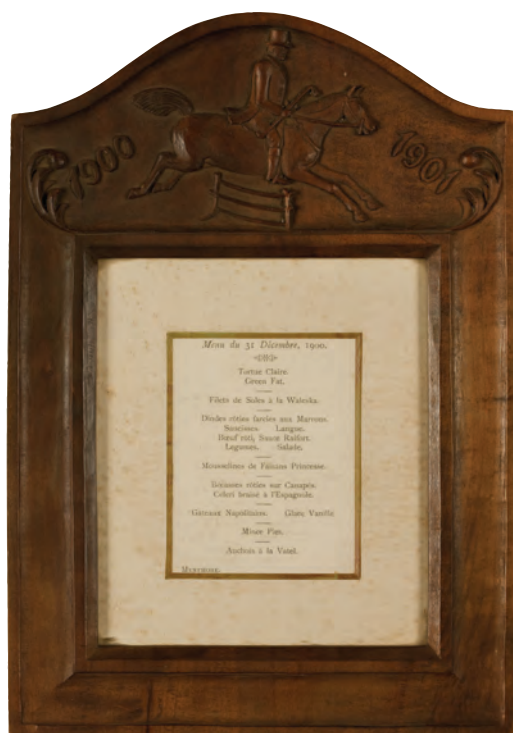 1900
1901
Menu du 31 Décembre, 1900.
Tortue Claire.
Green Fat.
Filets de Soles à la Waleska.
Dindes rôties farcies aux Marrons.
Saucisses. Langue.
Bœuf rôti, Sauce Raifort.
Legumes. Salade.
Mousselines de Faisans Princesse.
Bécasses rôties sur Canapés.
Celeri braisé à l'Espagnole.
Gâteaux Napolitains. Glace Vanille
Mince Pies.
Anchois à la Vatel.